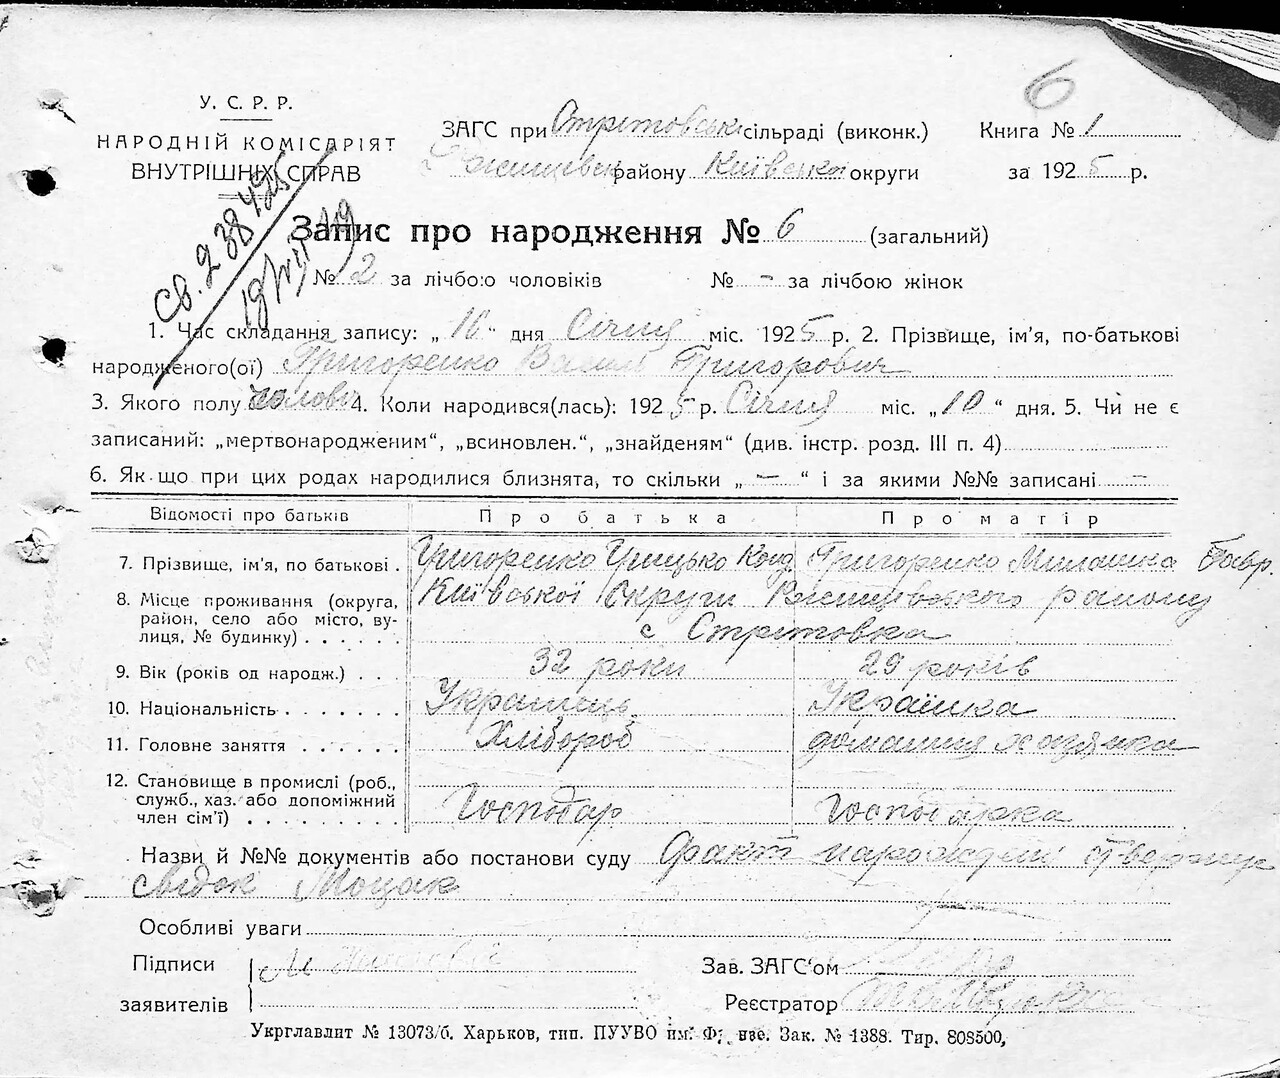 6
У. С. Р. Р.
НАРОДНІЙ КОМІСАРІЯТ
ВНУТРІШНІХ СПРАВ
ЗАГС при Стрітовській сільраді (виконк.)
району Київської округи
Книга № 1
за 1925 р.
Св. 238425
Запис про народження № 6 (загальний)
№ 2 за лічбою чоловіків № - за лічбою жінок
1. Час складання запису: „16“ дня Січня міс. 1925 р. 2. Прізвище, ім’я, по-батькові
народженого(ої) Григоренко Василь Григорович
3. Якого полу чолові 4. Коли народився(лась): 1925 р. Січня міс. „10“ дня. 5. Чи не є
записаний: „мертвонародженим“, „всиновлен.“, „знайденям“ (див. інстр. розд. III п. 4)
6. Як-що при цих родах народилися близнята, то скільки „—“ і за якими №№ записані —
Відомості про батьків Про батька Про матір
7. Прізвище, ім’я, по батькові . Григоренко Грицько Конд Григоренко Милашка
8. Місце проживання (округа, район, село або місто, вулиця, № будинку) . . . . . Київської Округи Ржищевського району
с Стрітовка
9. Вік (років од народж.) . . . 32 роки 29 років
10. Національність . . . . . . . Українець Українка
11. Головне заняття . . . . . . Хлібороб домашня хазяйка
12. Становище в промислі (роб., служб., хаз. або допоміжний член сім’ї) . . . . . . . . Господар Господарка
Назви й №№ документів або постанови суду Факт народження стверджує
свідок Моцак
Особливі уваги
Підписи
заявителів
Зав. ЗАГС‘ом
Реєстратор
Укрглавліт № 13073/б. Харьков, тип. ПУУВО им. Фрунзе. Зак. № 1388. Тир. 808500,